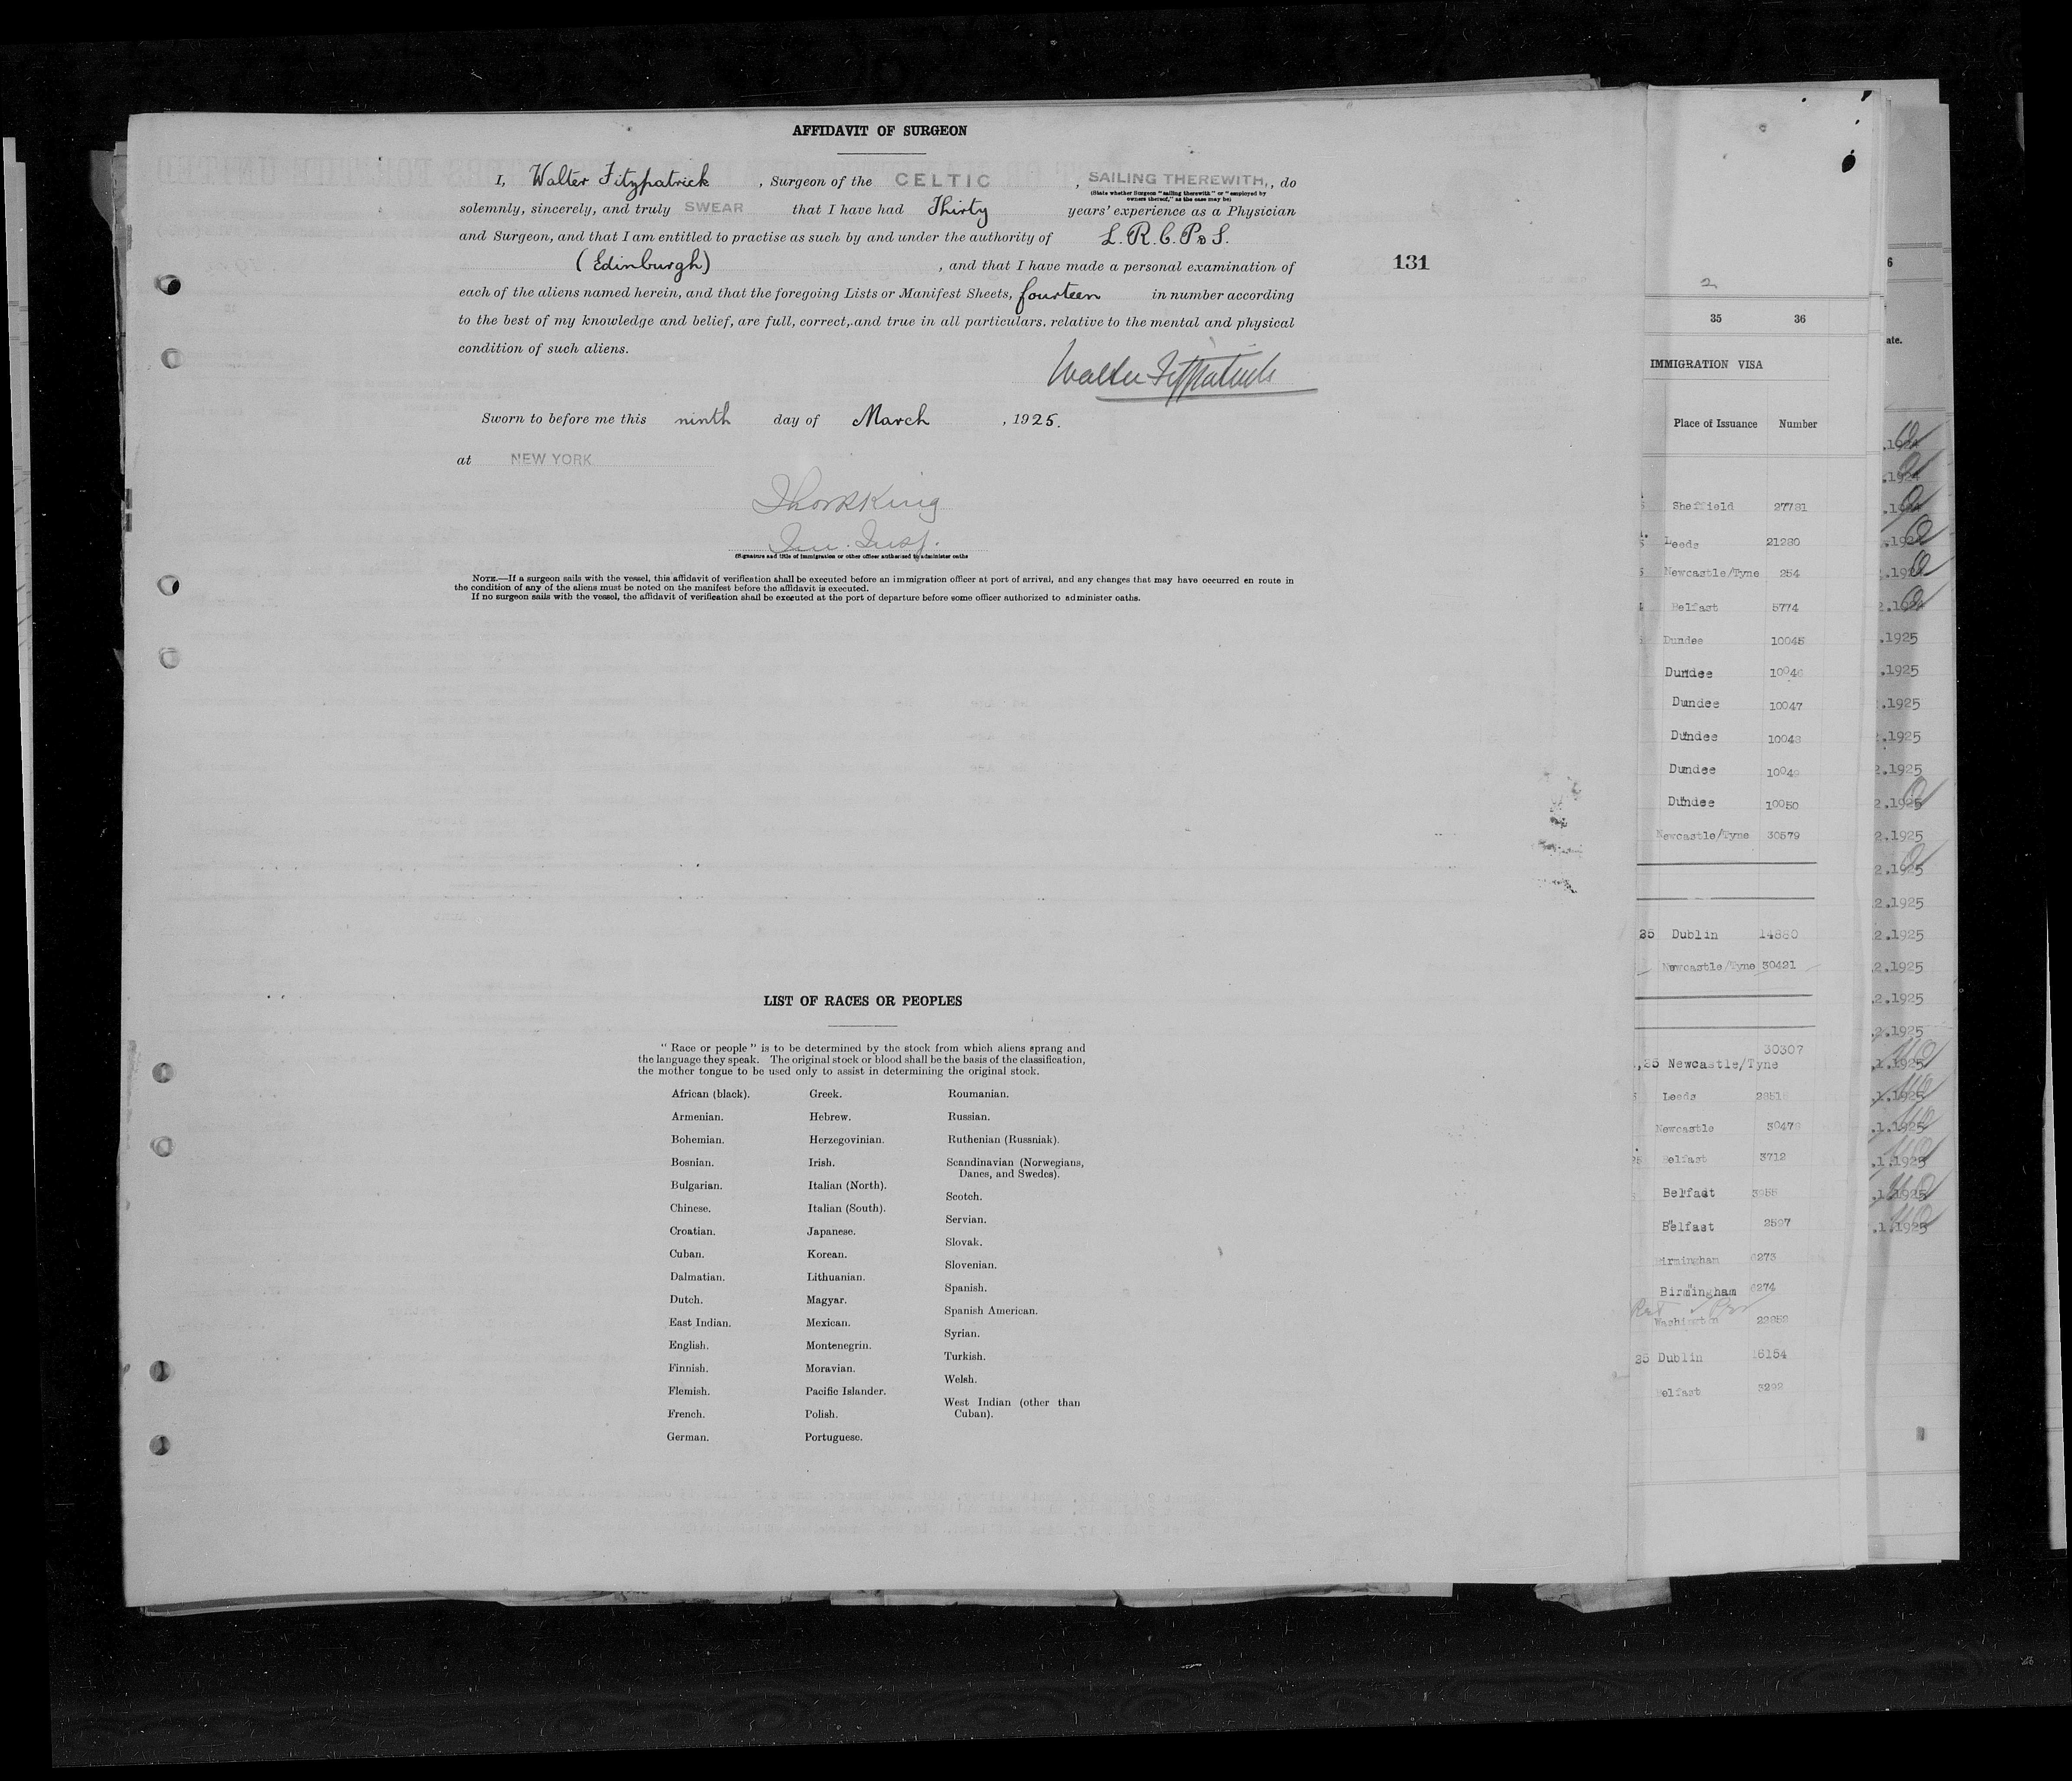 AFFIDAVIT OF SURGEON
I, Walter Fitzpatrick, Surgeon of the CELTIC, SAILING THEREWITH, do
(State whether Surgeon "sailing therewith" or "employed by
owners thereof," as the case may be)
solemnly, sincerely, and truly SWEAR that I have had Thirty years' experience as a Physician
and Surgeon, and that I am entitled to practise as such by and under the authority of L. R. C. P & S.
(Edinburgh), and that I have made a personal examination of
131
each of the aliens named herein, and that the foregoing Lists or Manifest Sheets, fourteen in number according
to the best of my knowledge and belief, are full, correct, and true in all particulars, relative to the mental and physical
condition of such aliens.
Walter Fitzpatrick
Sworn to before me this ninth day of March, 1925.
at NEW YORK
Im. Insp.
(Signature and title of immigration or other officer authorised to administer oaths
NOTE.—If a surgeon sails with the vessel, this affidavit of verification shall be executed before an immigration officer at port of arrival, and any changes that may have occurred en route in
the condition of any of the aliens must be noted on the manifest before the affidavit is executed.
If no surgeon sails with the vessel, the affidavit of verification shall be executed at the port of departure before some officer authorized to administer oaths.
LIST OF RACES OR PEOPLES
"Race or people" is to be determined by the stock from which aliens sprang and
the language they speak. The original stock or blood shall be the basis of the classification,
the mother tongue to be used only to assist in determining the original stock.
African (black).
Armenian.
Bohemian.
Bosnian.
Bulgarian.
Chinese.
Croatian.
Cuban.
Dalmatian.
Dutch.
East Indian.
English.
Finnish.
Flemish.
French.
German.
Greek.
Hebrew.
Herzegovinian.
Irish.
Italian (North).
Italian (South).
Japanese.
Korean.
Lithuanian.
Magyar.
Mexican.
Montenegrin.
Moravian.
Pacific Islander.
Polish.
Portuguese.
Roumanian.
Russian.
Ruthenian (Russniak).
Scandinavian (Norwegians,
Danes, and Swedes).
Scotch.
Servian.
Slovak.
Slovenian.
Spanish.
Spanish American.
Syrian.
Turkish.
Welsh.
West Indian (other than
Cuban).
2
35 36
IMMIGRATION VISA
Place of Issuance Number
Sheffield 27781
Leeds 21280
Newcastle/Tyne 254
Belfast 5774
Dundee 10045
Dundee 10046
Dundee 10047
Dundee 10048
Dundee 10049
Dundee 10050
Newcastle/Tyne 30579
25 Dublin 14880
Newcastle/Tyne 30421
30307
Newcastle/Tyne
Leeds
Newcastle 30479
Belfast 3712
Belfast
Belfast 2597
Birmingham 6273
Birmingham 6274
Washington
25 Dublin 16154
Belfast
6
ate.
.1924
.1924
.1924
.1924
.1924
2.1924
.1925
.1925
.1925
.1925
2.1925
2.1925
2.1925
2.1925
2.1925
2.1925
.2.1925
.2.1925
.2.1925
.1.1925
.1.1925
.1.1925
.1.1925
.1.1925
.1.1925